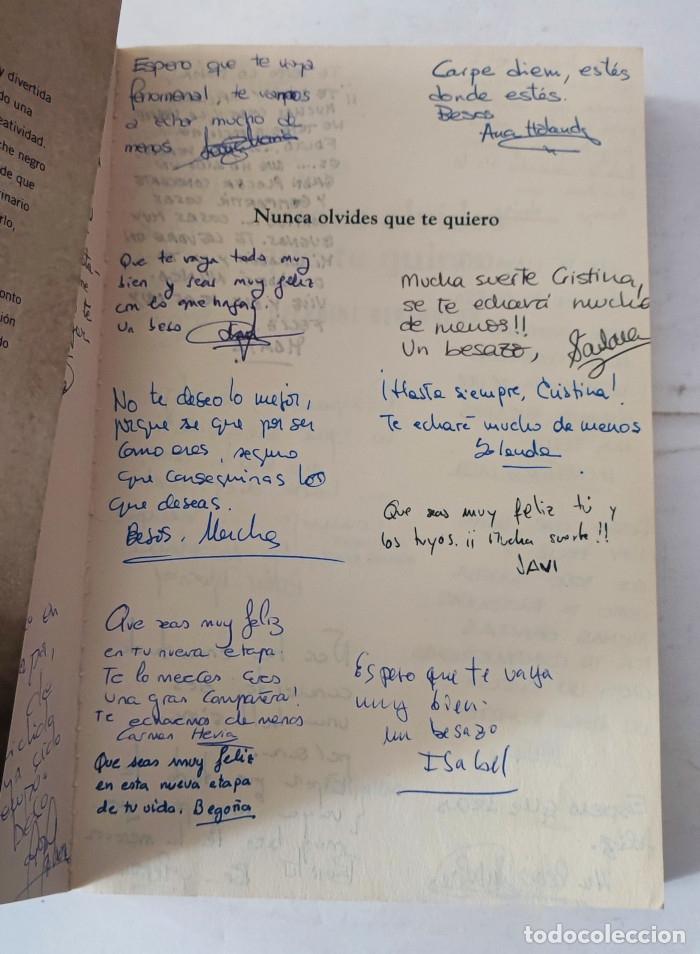 y divertida
do una
eatividad.
che negro
de que
rinario
rlo,
onto
ión
do
Espero que te vaya
fenomenal, te vamos
a echar mucho de
menos.
Carpe diem, estés
donde estés.
Besos
Ana
Nunca olvides que te quiero
Que te vaya todo muy
bien y seas muy feliz
con lo que hagas.
Un beso
Mucha suerte Cristina,
se te echará mucho
de menos!!
Un besazo,
No te deseo lo mejor,
porque se que por ser
como eres, seguro
que conseguiras los
que deseas.
Besos, Mercha
¡Hasta siempre, Cristina!
Te echaré mucho de menos
Yolanda
Que seas muy feliz tú y
los tuyos. ¡¡ Mucha suerte!!
JAVI
Que seas muy feliz
en tu nueva etapa.
Te lo mereces Eres
una gran compañera!
Te echaremos de menos
Carmen Hevia
Que seas muy feliz
en esta nueva etapa
de tu vida. Begoña
Espero que te vaya
muy bien.
un besazo
Isabel
todocoleccion